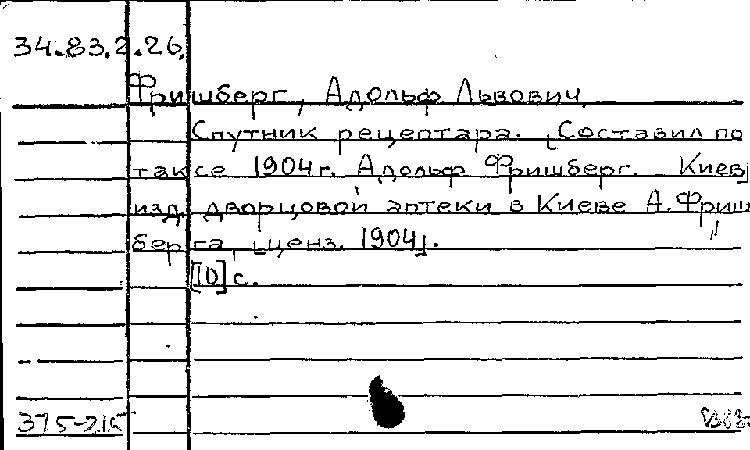 34.83.2.26.
Фришберг, Адольф Львович.
Спутник рецептара. [Составил по
таксе 1904 г. Адольф Фришберг. Киев],
изд. дворцовой аптеки в Киеве А. Фриш-
берга, [ценз. 1904].
[10] с.
375-215